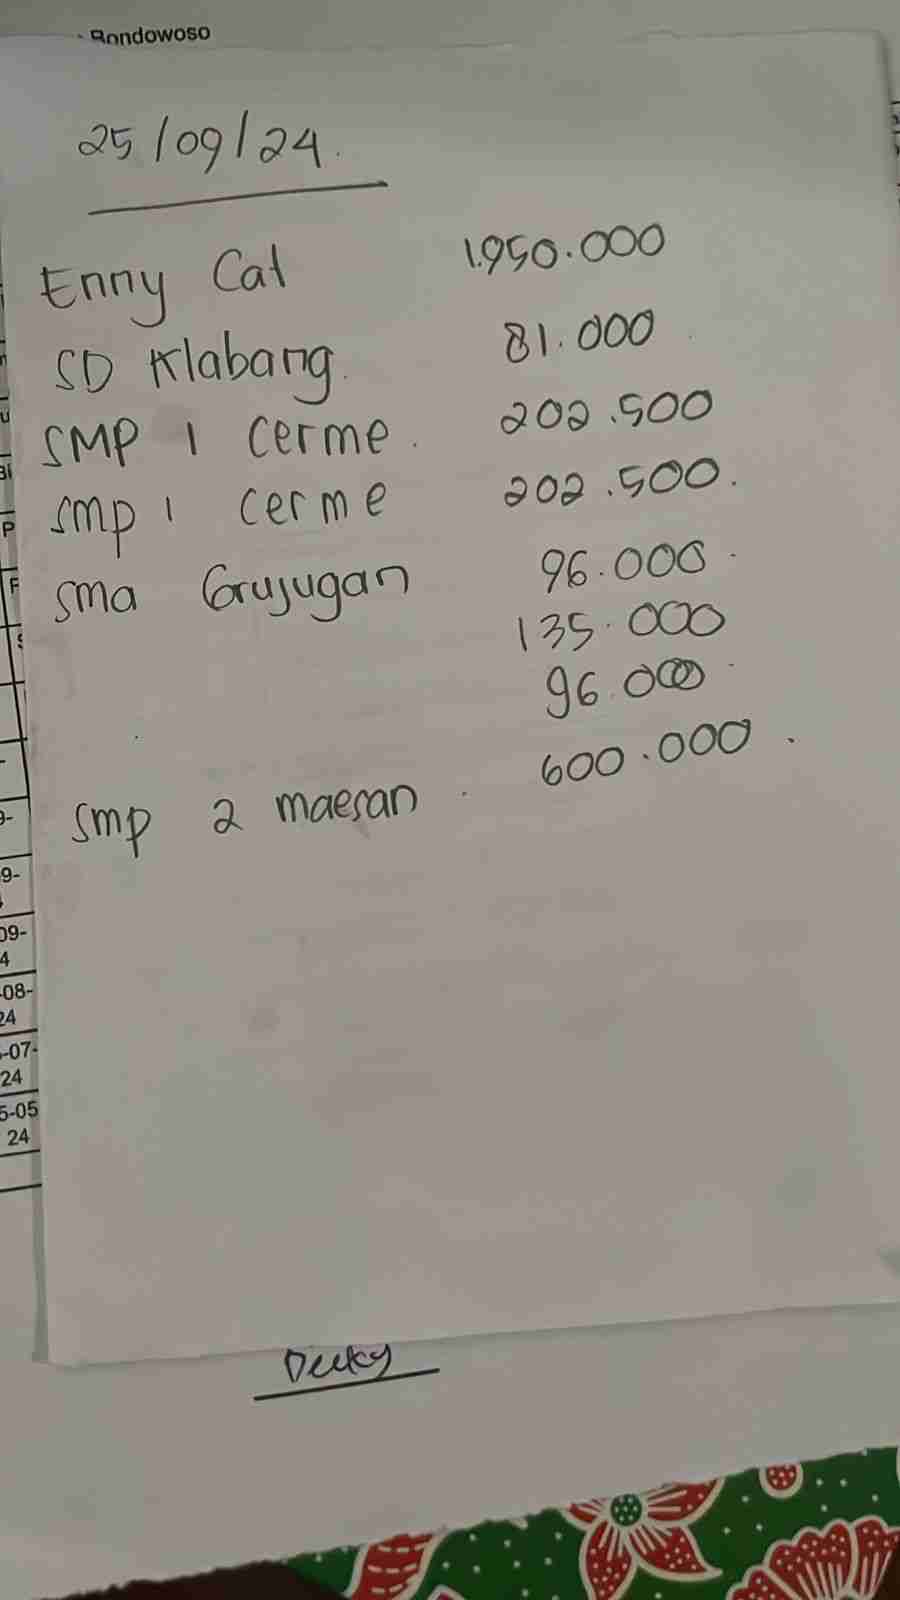 Bondowoso
25/09/24.
Enny Cat 1.950.000
SD Klabang. 81.000
SMP 1 Cerme. 202.500
Smp 1 cerme 202.500.
Sma Grujugan 96.000
135.000
96.000
Smp 2 maesan. 600.000.
9-
9-
09-
4
-08-
24
-07-
24
5-05
24